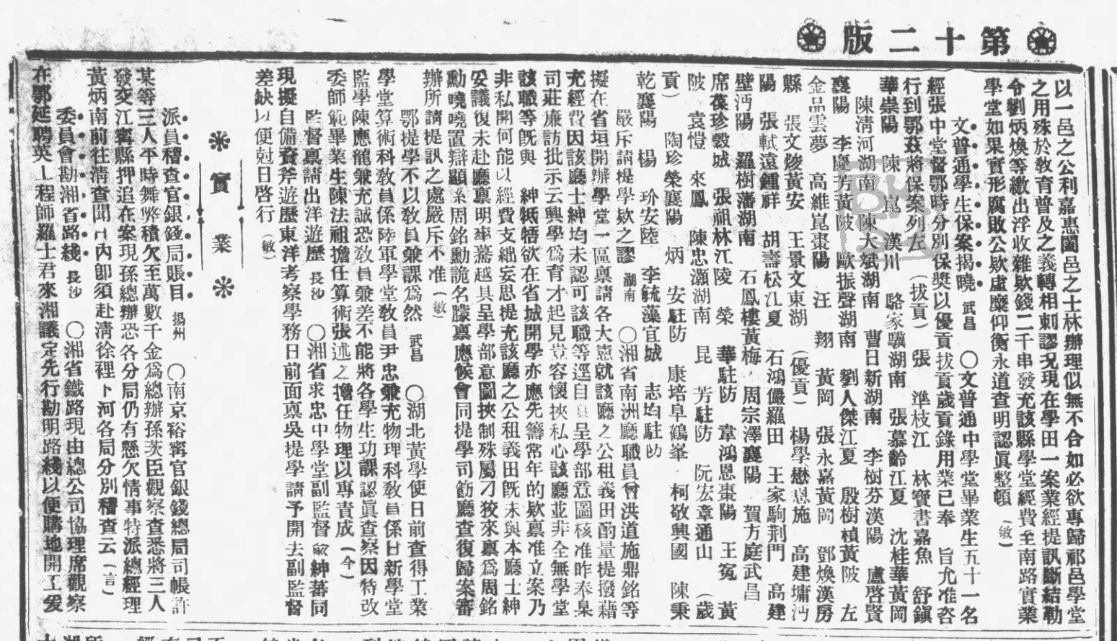 第十二版
以一邑之公利嘉惠闔邑之士林辦理似無不合如必欲專歸祁邑學堂
之用殊於敎育普及之義轉相刺謬况現在學田一案業經提訊斷結勒
令劉炳煥等繳出浮收雜欵錢二千串發充該縣學堂經費至南路實業
學堂如果實形腐敗公欵虛糜仰衡永道查明認眞整頓（敏）
文普通學生保案揭曉 武昌 〇文普通中學堂畢業生五十一名
經張中堂督鄂時分別保獎以優貢拔貢歲貢錄用業已奉 旨允准咨
行到鄂茲將保案列左（拔貢）張 準枝江 林寶書嘉魚 舒鎭
華崇陽 陳 崑漢川 駱家驥湖南 張慕齡江夏 沈桂華黃岡
陳清河湖南 陳大斌湖南 曹日新湖南 李樹芬漢陽 盧啓賢
襄陽 李廣芳黃陂 歐振聲湖南 劉人傑江夏 殷樹楨黃陂 左
金品雲夢 高維崑棗陽 汪 翔黃岡 張永嘉黃岡 鄧煥漢房
縣 張文燧黃安 王景文東湖（優貢）楊學懋恩施 高建墉沔
陽 張軾遠鍾祥 胡壽松江夏 石鴻儼羅田 王家駒荆門 高建
壁沔陽 羅樹藩湖南 石鳳樓黃梅 周宗澤襄陽 賀方庭武昌
席葆珍穀城 張祖林江陵 榮 華駐防 韋鴻恩棗陽 王寃 黃
陂 袁愷 來鳳 陳忠灝湖南 昆 芳駐防 阮宏章通山（歲
貢）陶珍榮襄陽 炳 安駐防 康培阜鶴峯 柯敬興國 陳秉
乾襄陽 楊 玠安陸 李毓藻宜城 志均駐防
嚴斥請提學欵之謬 湖南 〇湘省南洲廳職員曾洪道施鼎銘等
擬在省垣開辦學堂一區稟請各大憲就該廳之公租義田酌量提撥藉
充經費因該廳士紳均未認可該職等逕自具呈學部意圖核准昨奉臬
司莊廉訪批示云興學爲育才起見豈容懷挾私心該廳並非全無學堂
該職等旣與 紳牴牾欲在省城開學亦應先籌常年的欵稟准立案乃
非私開何能以經費支絀妄思提充該廳之公租義田旣未與本廳士紳
妥議復未赴廳稟明率驀越具呈學部意圖挾制殊屬刁狡來稟爲周銘
勳嘵嘵置辯顯系周銘勳詭名朦稟應候會同提學司飭廳查復歸案審
辦所請提訊之處嚴斥不准（敏）
鄂提學不以敎員兼課爲然 武昌 〇湖北黃學使日前查得工業
學堂算術科敎員係陸軍學堂敎員尹忠兼充物理科敎員係日新學堂
監學陳應龍兼充誠恐敎員兼差不能將各學生功課認眞查察因特改
委師範畢業生陳法祖擔任算術張述之擔任物理以專責成（今）
監督稟請出洋遊歷 長沙 〇湘省求忠中學堂副監督 紳蕃同
現擬自備資斧遊歷東洋考察學務日前面稟吳提學請予開去副監督
差缺以便尅日啓行（敏）
實業
派員稽查官銀錢局賬目 揚州 〇南京裕寗官銀錢總局司帳許
某等三人平時舞弊積欠至萬數千金爲總辦孫茇臣觀察查悉將三人
發交江寗縣押追在案現孫總辦恐各分局仍有懸欠情事特派總經理
黃炳南前往清查聞日內卽須赴清徐裡下河各局分別稽查云（言）
委員會勘湘省路綫 長沙 〇湘省鐵路現由總公司協理席觀察
在鄂延聘英工程師羅士君來湘議定先行勘明路綫以便購地開工爰